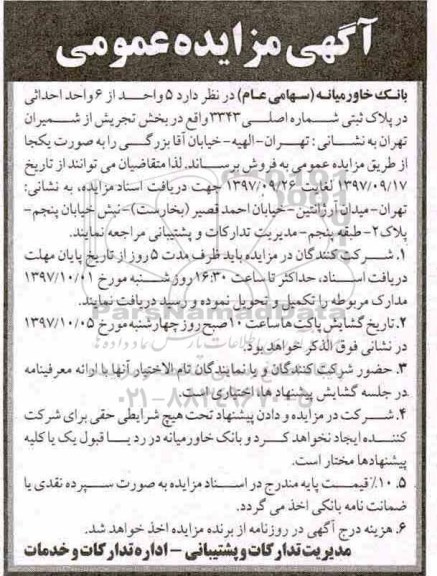 آگهی مزایده عمومی
بانک خاورمیانه (سهامی عام) در نظر دارد ۵ واحد از ۶ واحد احداثی
در پلاک ثبتی شماره اصلی ۳۳۴۳ واقع در بخش تجریش از شمیران
تهران به نشانی : تهران-الهیه-خیابان آقا بزرگی را به صورت یکجا
از طریق مزایده عمومی به فروش برساند. لذا متقاضیان می توانند از تاریخ
۱۳۹۷/۰۹/۱۷ لغایت ۱۳۹۷/۰۹/۲۶ جهت دریافت اسناد مزایده، به نشانی:
تهران-میدان آرژانتین-خیابان احمد قصیر (بخارست)-نبش خیابان پنجم-
پلاک۲-طبقه پنجم-مدیریت تدارکات و پشتیبانی مراجعه نمایند.
۱. شرکت کنندگان در مزایده باید ظرف مدت ۵ روز از تاریخ پایان مهلت
دریافت اسناد، حداکثر تا ساعت ۱۶:۳۰ روز شنبه مورخ ۱۳۹۷/۱۰/۰۱
مدارک مربوطه را تکمیل و تحویل نموده و رسید دریافت نمایند.
ParsNamadData
۲. تاریخ گشایش پاکت ها ساعت ۱۰ صبح روز چهارشنبه مورخ ۱۳۹۷/۱۰/۰۵
در نشانی فوق الذکر خواهد بود.
۳. حضور شرکت کنندگان و یا نمایندگان تام الاختیار آنها با ارائه معرفینامه
در جلسه گشایش پیشنهاد ها، اختیاری است.
۴. شرکت در مزایده و دادن پیشنهاد تحت هیچ شرایطی حقی برای شرکت
کننده ایجاد نخواهد کرد و بانک خاورمیانه در رد یا قبول یک یا کلیه
پیشنهادها مختار است.
۵. ۱۰٪ قیمت پایه مندرج در اسناد مزایده به صورت سپرده نقدی یا
ضمانت نامه بانکی اخذ می گردد.
۶. هزینه درج آگهی در روزنامه از برنده مزایده اخذ خواهد شد.
مدیریت تدارکات و پشتیبانی - اداره تدارکات و خدمات